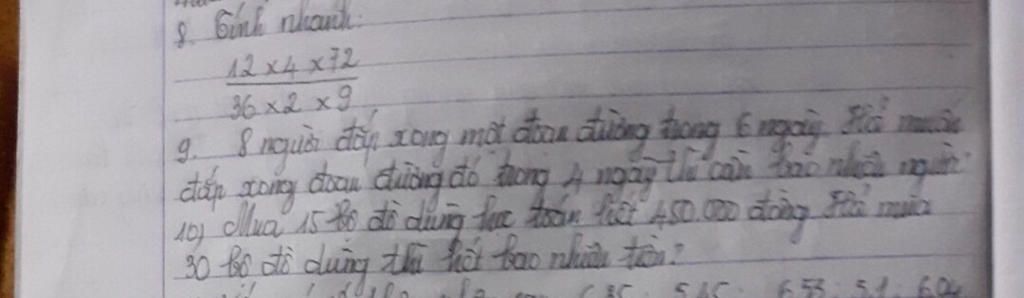 8. Tính nhanh:
12 x 4 x 72
36 x 2 x 9
9. 8 người đắp xong một đoạn đường trong 6 ngày. Hỏi muốn
đắp xong đoạn đường đó trong 4 ngày thì cần bao nhiêu người?
10) Mua 15 bộ đồ dùng học toán hết 450.000 đồng. Hỏi mua
30 bộ đồ dùng thì hết bao nhiêu tiền?